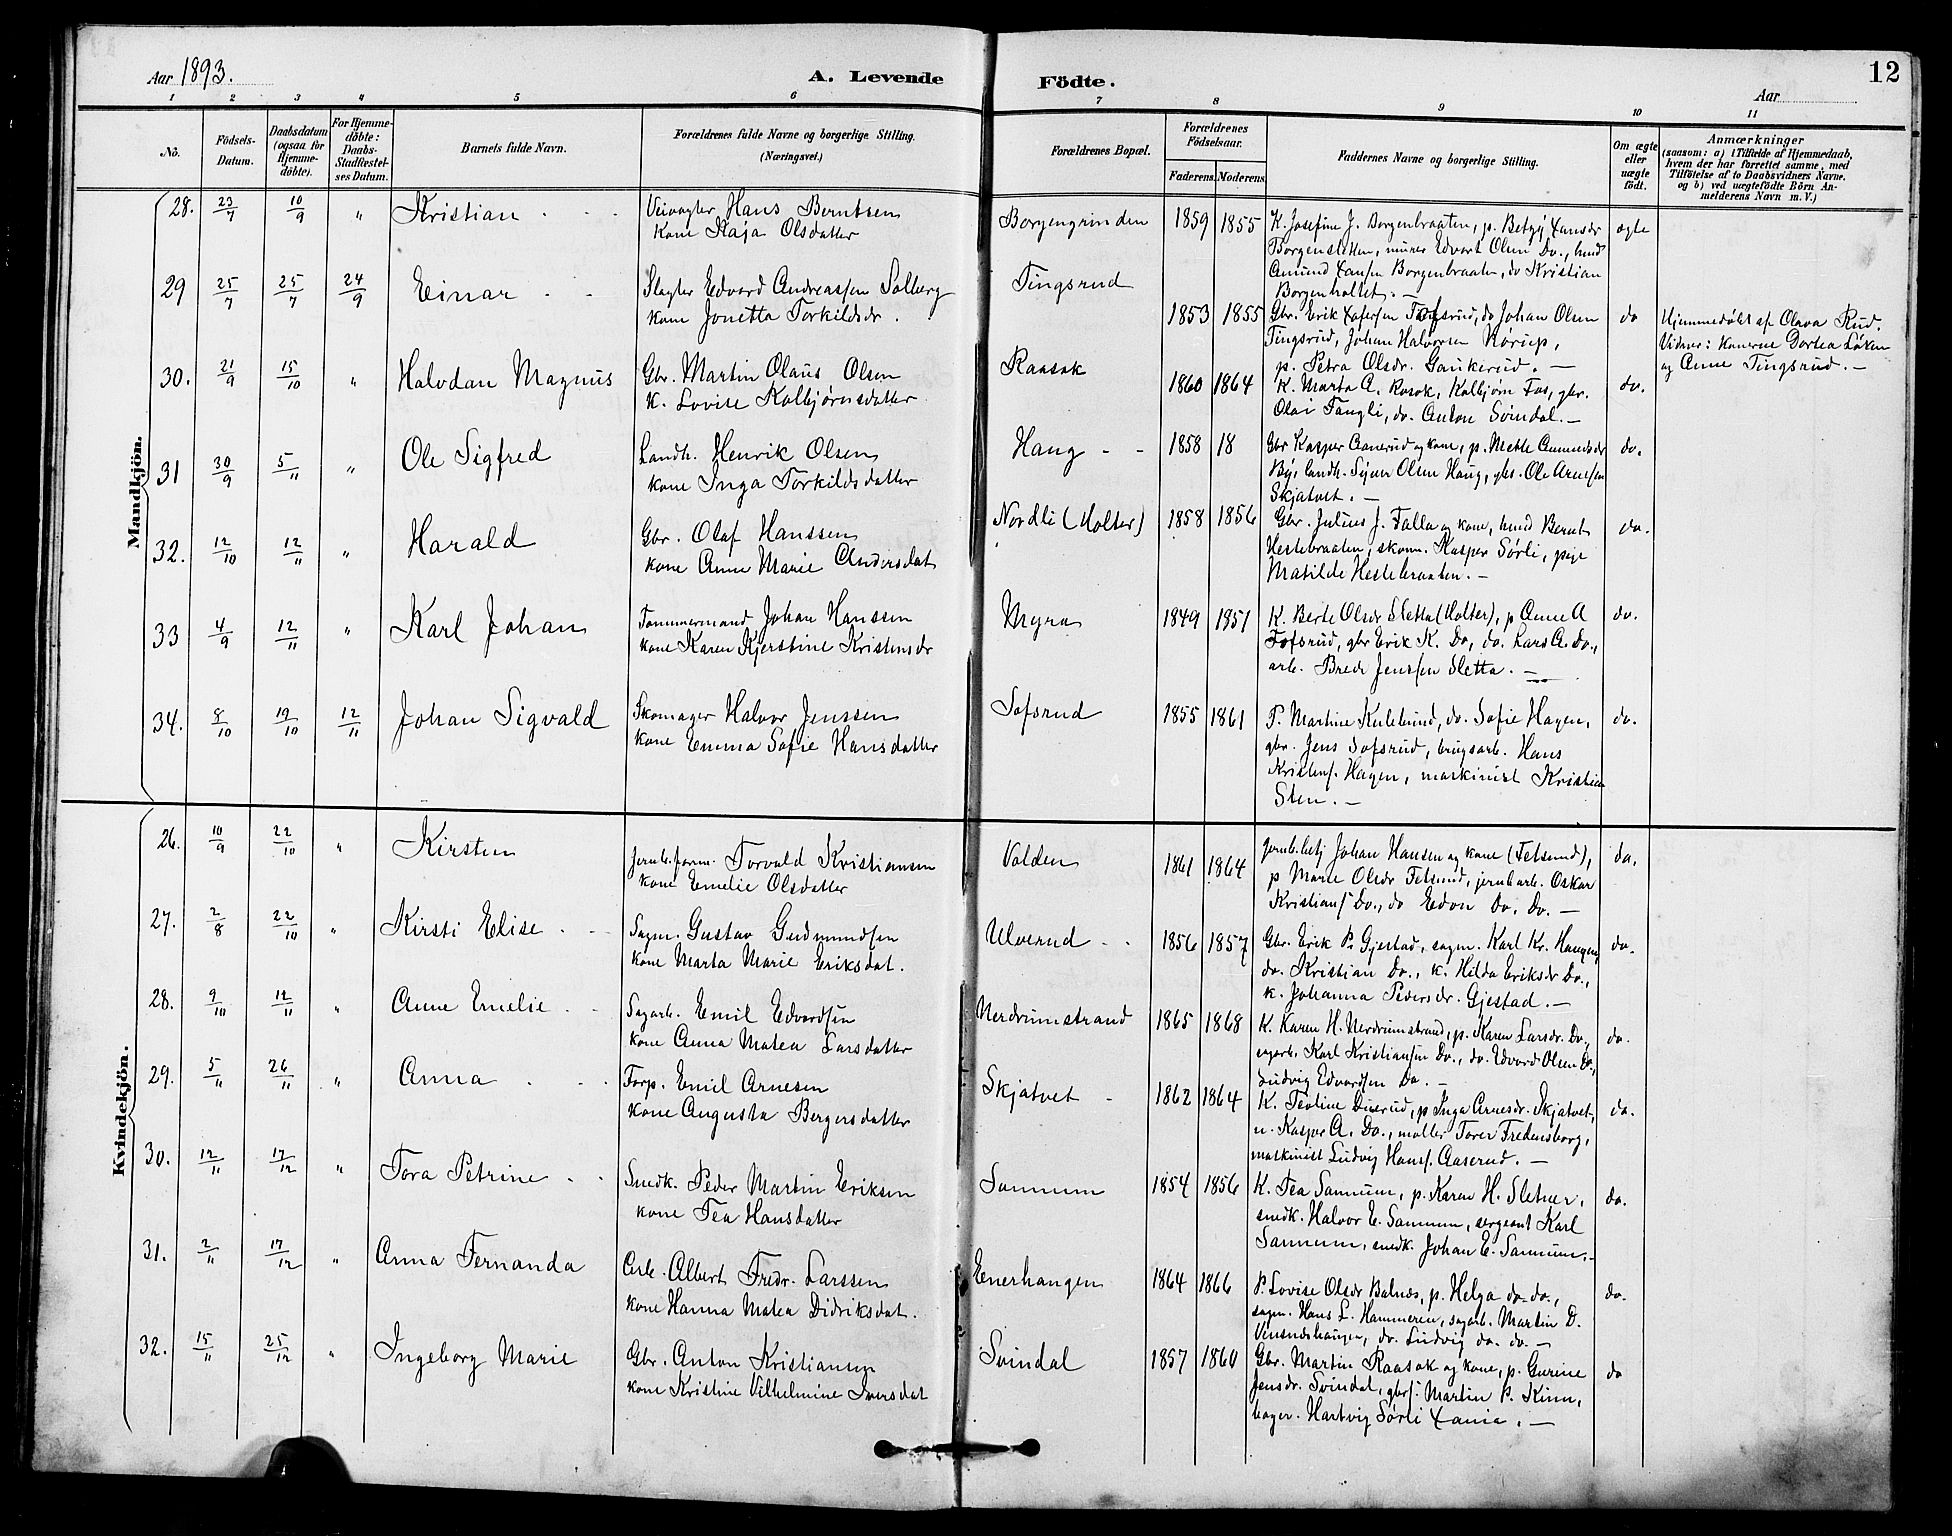 Aar 1893.
A. Levende Födte.
12
Aar
1 2 3 4 5 6 7 8 9 10 11
No.
Födsels-Datum.
Daabsdatum (ogsaa for Hjemme-döbte).
For Hjemme-döbte: Daabs-Stadfæstel-ses Datum.
Barnets fulde Navn.
Forældrenes fulde Navne og borgerlige Stilling. (Næringsvei.)
Forældrenes Bopæl.
Forældrenes Födselsaar.
Faderens. Moderens.
Faddernes Navne og borgerlige Stilling.
Om ægte eller uægte födt.
Anmærkninger
(saasom: a) i Tilfælde af Hjemmedaab,
hvem der har forrettet samme, med
Tilföielse af to Daabsvidners Navne.
og b) ved uægtefödte Börn An-
melderens Navn m. V.)
Mandkjön.
28. 23/7 10/9 " Kristian Veivogter Hans Berntsen
kone Kaja Olsdatter
Borgengrinden 1859 1855 K. Josefine J. Borgenbraaten, p. Betzy Hansdr
Borgensletten, murer Edvart Olsen Do., hmd
Amund Hansen Borgenbraaten, do Kristian
Borgenholtet. —
ægte
29 25/7 25/7 24/9 Einar Slagter Edvard Andreassen Solberg
kone Jonetta Torkildsdr.
Tingsrud 1853 1855 Gbr. Erik Tofsrud, do Johan Olsen
Tingsrud, Johan Halvorsen Kørup,
p. Petra Olsdr. Gaukerud. —
do
Hjemmedøbt af Olava Rud.
Vidner: konerne Dortea Løken
og Anne Tingsrud. —
30. 21/9 15/10 " Halvdan Magnus Gbr. Martin Olaus Olsen
k. Lovise Kolbjørnsdatter
Raasok 1860 1864 K. Marta A. Rasok, Kolbjørn Fos, gbr.
Olai Tangli, do. Anton Svindal. —
do.
31 30/9 5/11 " Ole Sigfred Landh. Henrik Olsen
kone Inga Torkildsdatter
Haug 1858 18 Gbr Kasper Aanerud og kone, p. Mette Amundsdr
By, landh. Olsen Haug, gbs. Ole Arnesen
Skjatvet. —
do.
32. 12/10 12/11 " Harald Gbr. Olaf Hanssen
kone Anne Marie Andersdat
Nordli (Holter) 1858 1856 Gbr. Julius J. Falla og kone, hmd Bernt
Hestebraaten, skom. Kasper Sørli, pige
Matilde Hestebraaten. —
do.
33 4/9 12/11 " Karl Johan Tømmermand Johan Hanssen
kone Karen Kjerstine Kristensdr
Myra 1849 1851 K. Berte Olsdr Sletta (Holter), p Anne A
Tofsrud, gbr Erik K. Do, do. Lars A. Do.,
arb. Brede Jenssen Sletta. —
do.
34. 8/10 19/10 12/11 Johan Sigvald Skomager Halvor Jenssen
kone Emma Sofie Hansdatter
Tofsrud 1855 1861 P. Martine Kulslund, do. Sofie Hagen,
gbr. Jens Tofsrud, brugsarb. Hans
Kristens. Hagen, maskinist Kristian
Sten. —
do.
Kvindekjön.
26. 10/9 22/10 " Kirsten Jernb.form. Torvald Kristiansen
kone Emelie Olsdatter
Volden 1861 1864 Jernb.betj Johan Hansen og kone (Fetsund),
p Marie Olsdr Fetsund, jernb.arb. Oskar
Kristians Do., do Edvin Do. Do. —
do.
27. 2/8 22/10 " Kirsti Elise Sagm. Gustav Gudmundsen
kone Marta Marie Eriksdat.
Ulverud 1856 1857 Gbr. Erik P. Gjestad, sagm. Karl Kr. Haugen,
do. Kristian Do., k. Hilda Eriksdr Do.,
k. Johanna Pedersdr. Gjestad. —
do.
28. 9/10 12/11 " Anne Emelie Sagarb. Emil Edvardsen
kone Anna Matea Larsdatter
Nerdrumstrand 1865 1868 K. Karen H. Nerdrumstrand, p. Karen Larsdr. Do.,
sagarb. Karl Kristiansen Do., do. Edvard Olsen Do.,
Ludvig Edvardsen Do. —
do.
29. 5/11 26/11 " Anna Forp. Emil Arnesen
kone Augusta Bergersdatter
Skjatvet 1862 1864 K. Teoline Duerud, p Inga Arnesdr. Skjatvet,
u. Kasper A. Do., møller Torer Fredensborg,
maskinist Ludvig Hans. Aaserud. —
do.
30. 12/11 17/12 " Tora Petrine Snedk. Peder Martin Eriksen
kone Tea Hansdatter
Sannum 1854 1856 K. Tea Sannum, p. Karen H. Sletner,
snedk. Halvor E. Sannum, sergeant Karl
Sannum, snedk. Johan E. Sannum. —
do.
31. 2/11 17/12 " Anna Fernanda Arb. Albert Fredr. Larssen
kone Hanna Matea Didriksdat.
Enerhaugen 1864 1866 P. Lovise Olsdr Balnes, p. Helga do. do.,
sagm. Hans L. Hammeren, sagarb. Martin D.
do. Ludvig do. do. —
do.
32. 15/11 25/12 " Ingeborg Marie Gbr. Anton Kristiansen
kone Kristine Vilhelmine Iversdat
Svindal 1857 1860 Gbr. Martin Raasok og kone, p. Gurine
Jensdr. Svindal, gbrs. Martin P. Kinn,
bager. Hartvig Sørli Xania. —
do